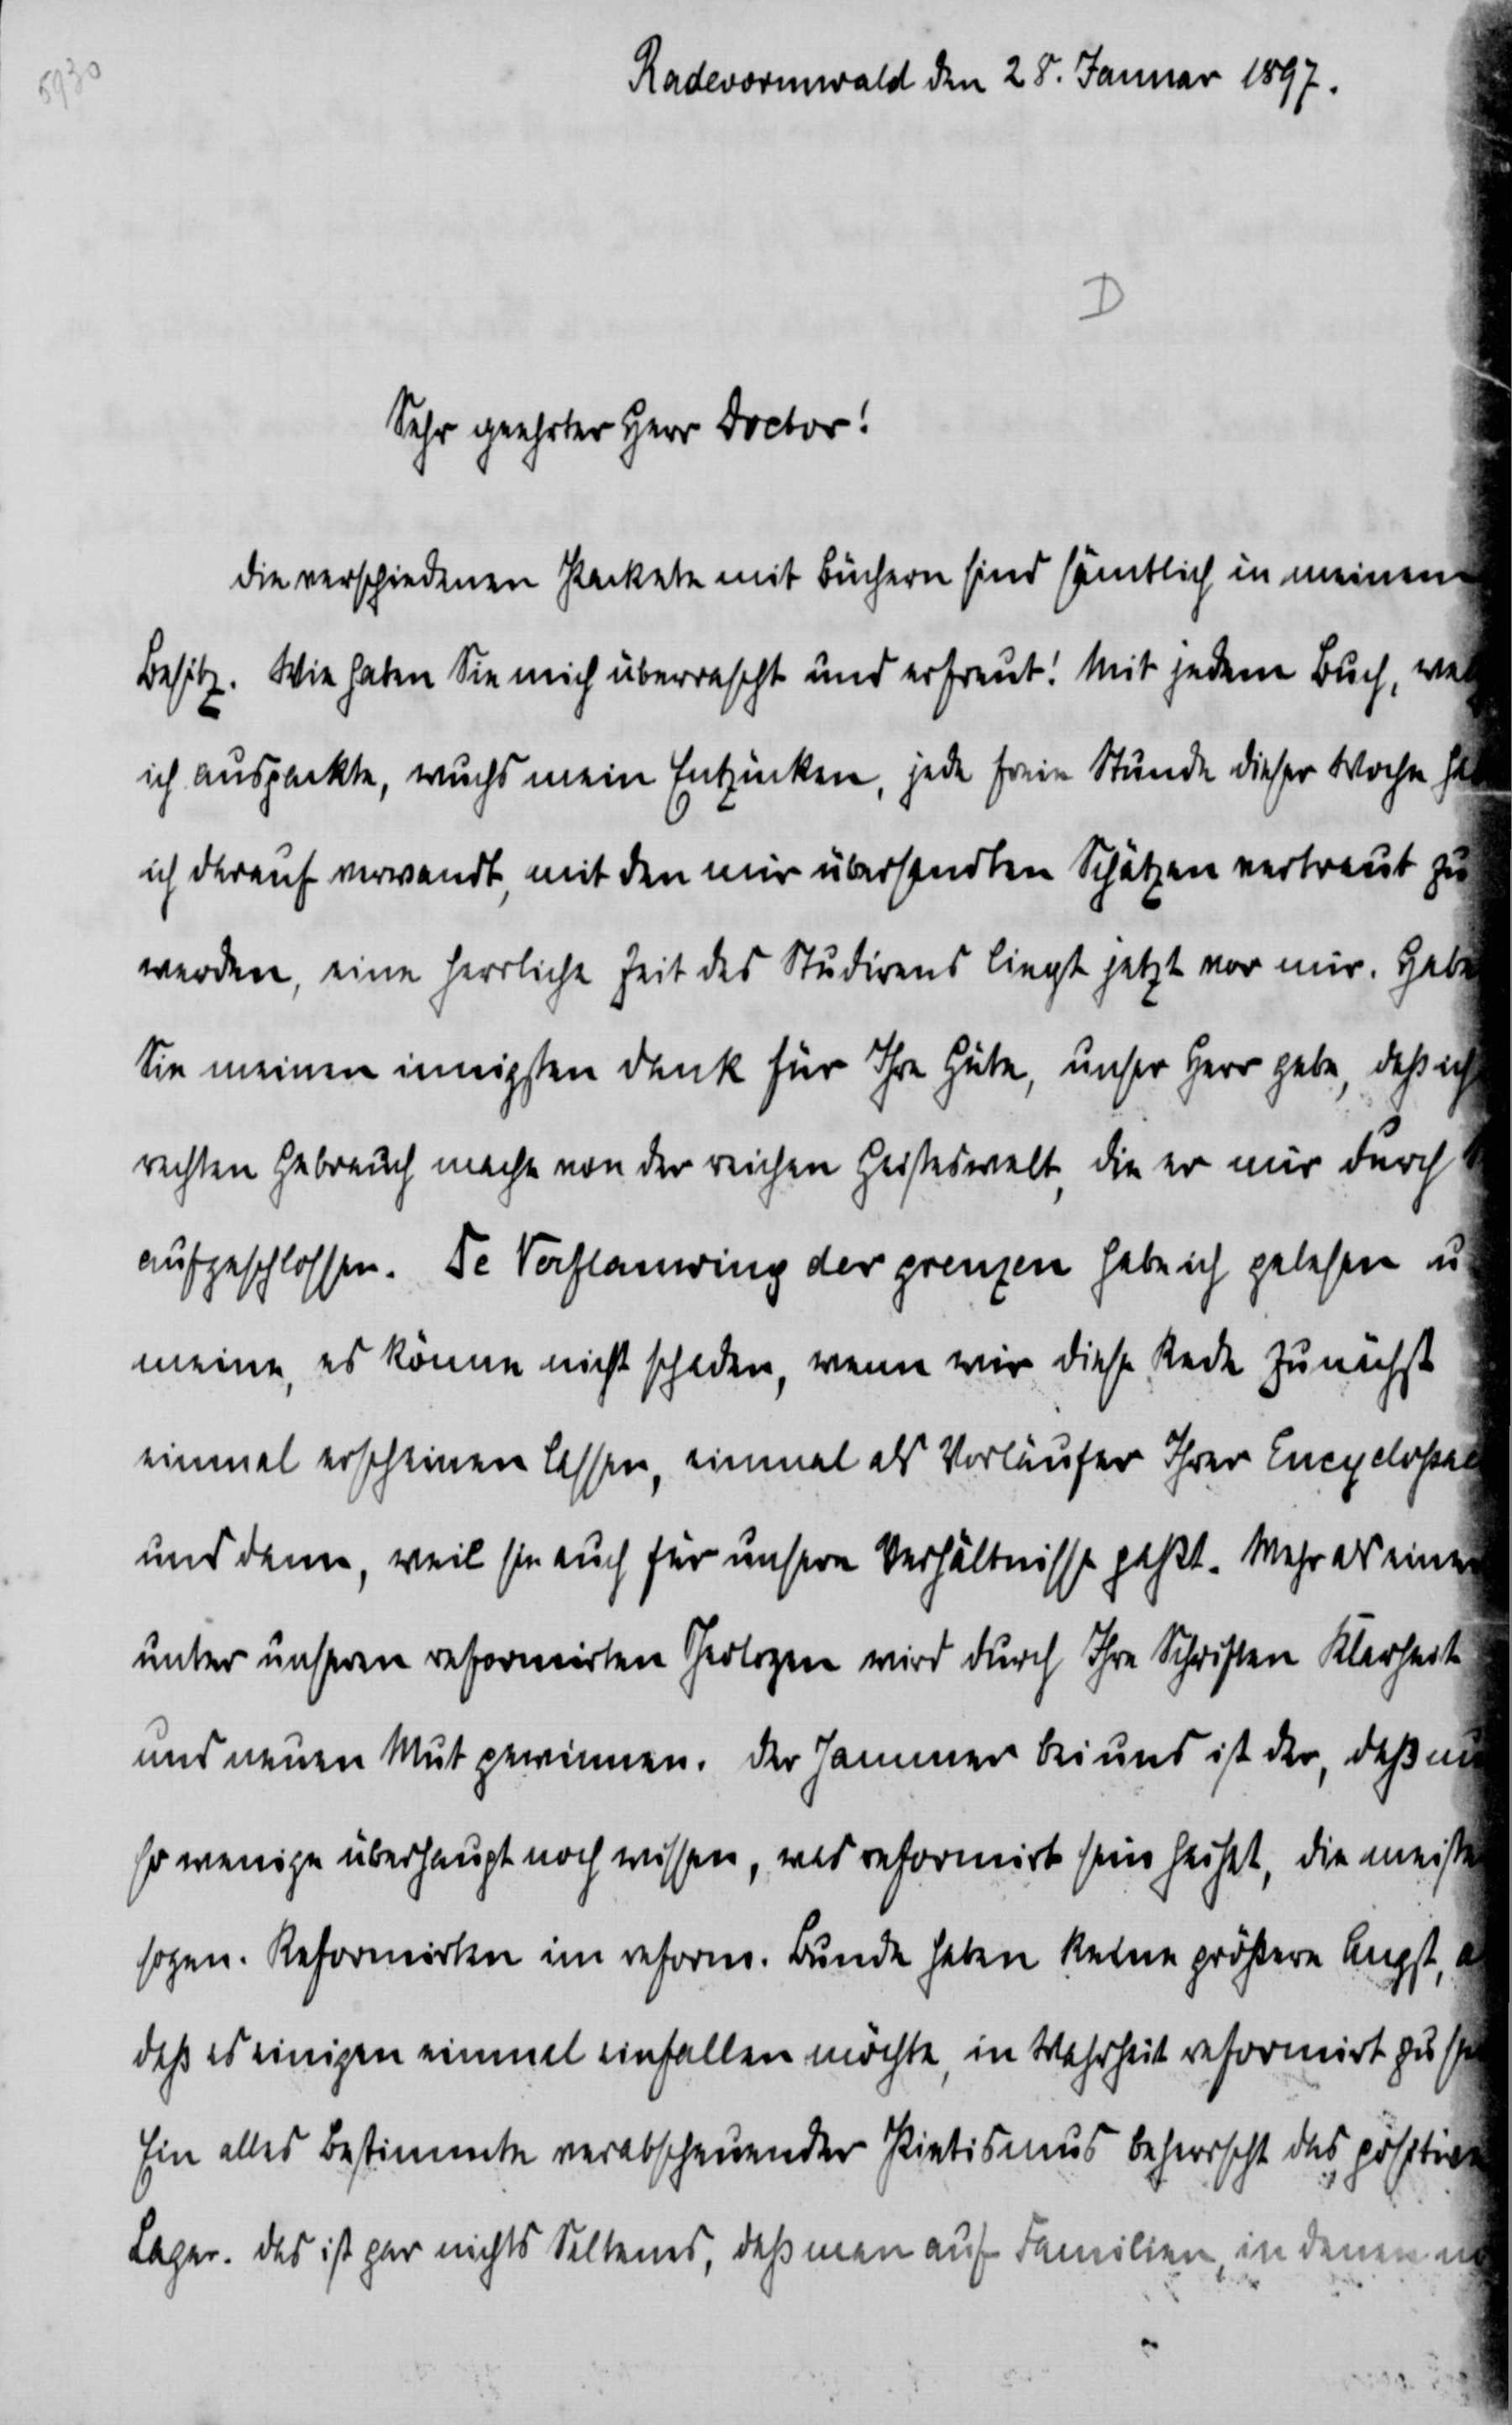 5930
Radevormwald den 28. Januar 1897.
D
Sehr geehrter Herr Doctor!
die verschiedenen Packete mit Büchern sind sämtlich in meinem
Besitz. Wie haben Sie mich überrascht und erfreut! Mit jedem Buch, wel
ich auspackte, wuchs mein Entzücken, jede freie Stunde dieser Woche hab
ich darauf verwandt, mit den mir übersandten Schätzen vertraut zu
werden, eine herrliche Zeit des Studirens liegt jetzt vor mir. Habe
Sie meinen innigsten Dank für Ihre Güte, unser Herr gebe, daß ich
rechten Gebrauch mache von der reichen Geisteswelt, die er mir durch
aufgeschlossen. De Verflauwing der grenzen habe ich gelesen u
meine, es könne nicht schaden, wenn wir diese Rede zunächst
einmal erscheinen lassen, einmal als Vorläufer Ihrer Encyclopae
und dann, weil sie auch für unsere Verhältnisse paßt. Mehr als einer
unter unseren reformirten Theologen wird durch Ihre Schriften Klarheit
und neuen Mut gewinnen. Der Jammer bei uns ist der, daß nu
so wenige überhaupt noch wissen, was reformirt sein heißt, die meiste
sogen. Reformirten im reform. Bunde haben keine größere Angst, a
daß es einigen einmal einfallen möchte, in Wahrheit reformirt zu se
Ein alles Bestimmte verabscheuender Pietismus beherrscht das positive
Lager. Das ist gar nichts Seltenes, daß man auf Familien, in denen no